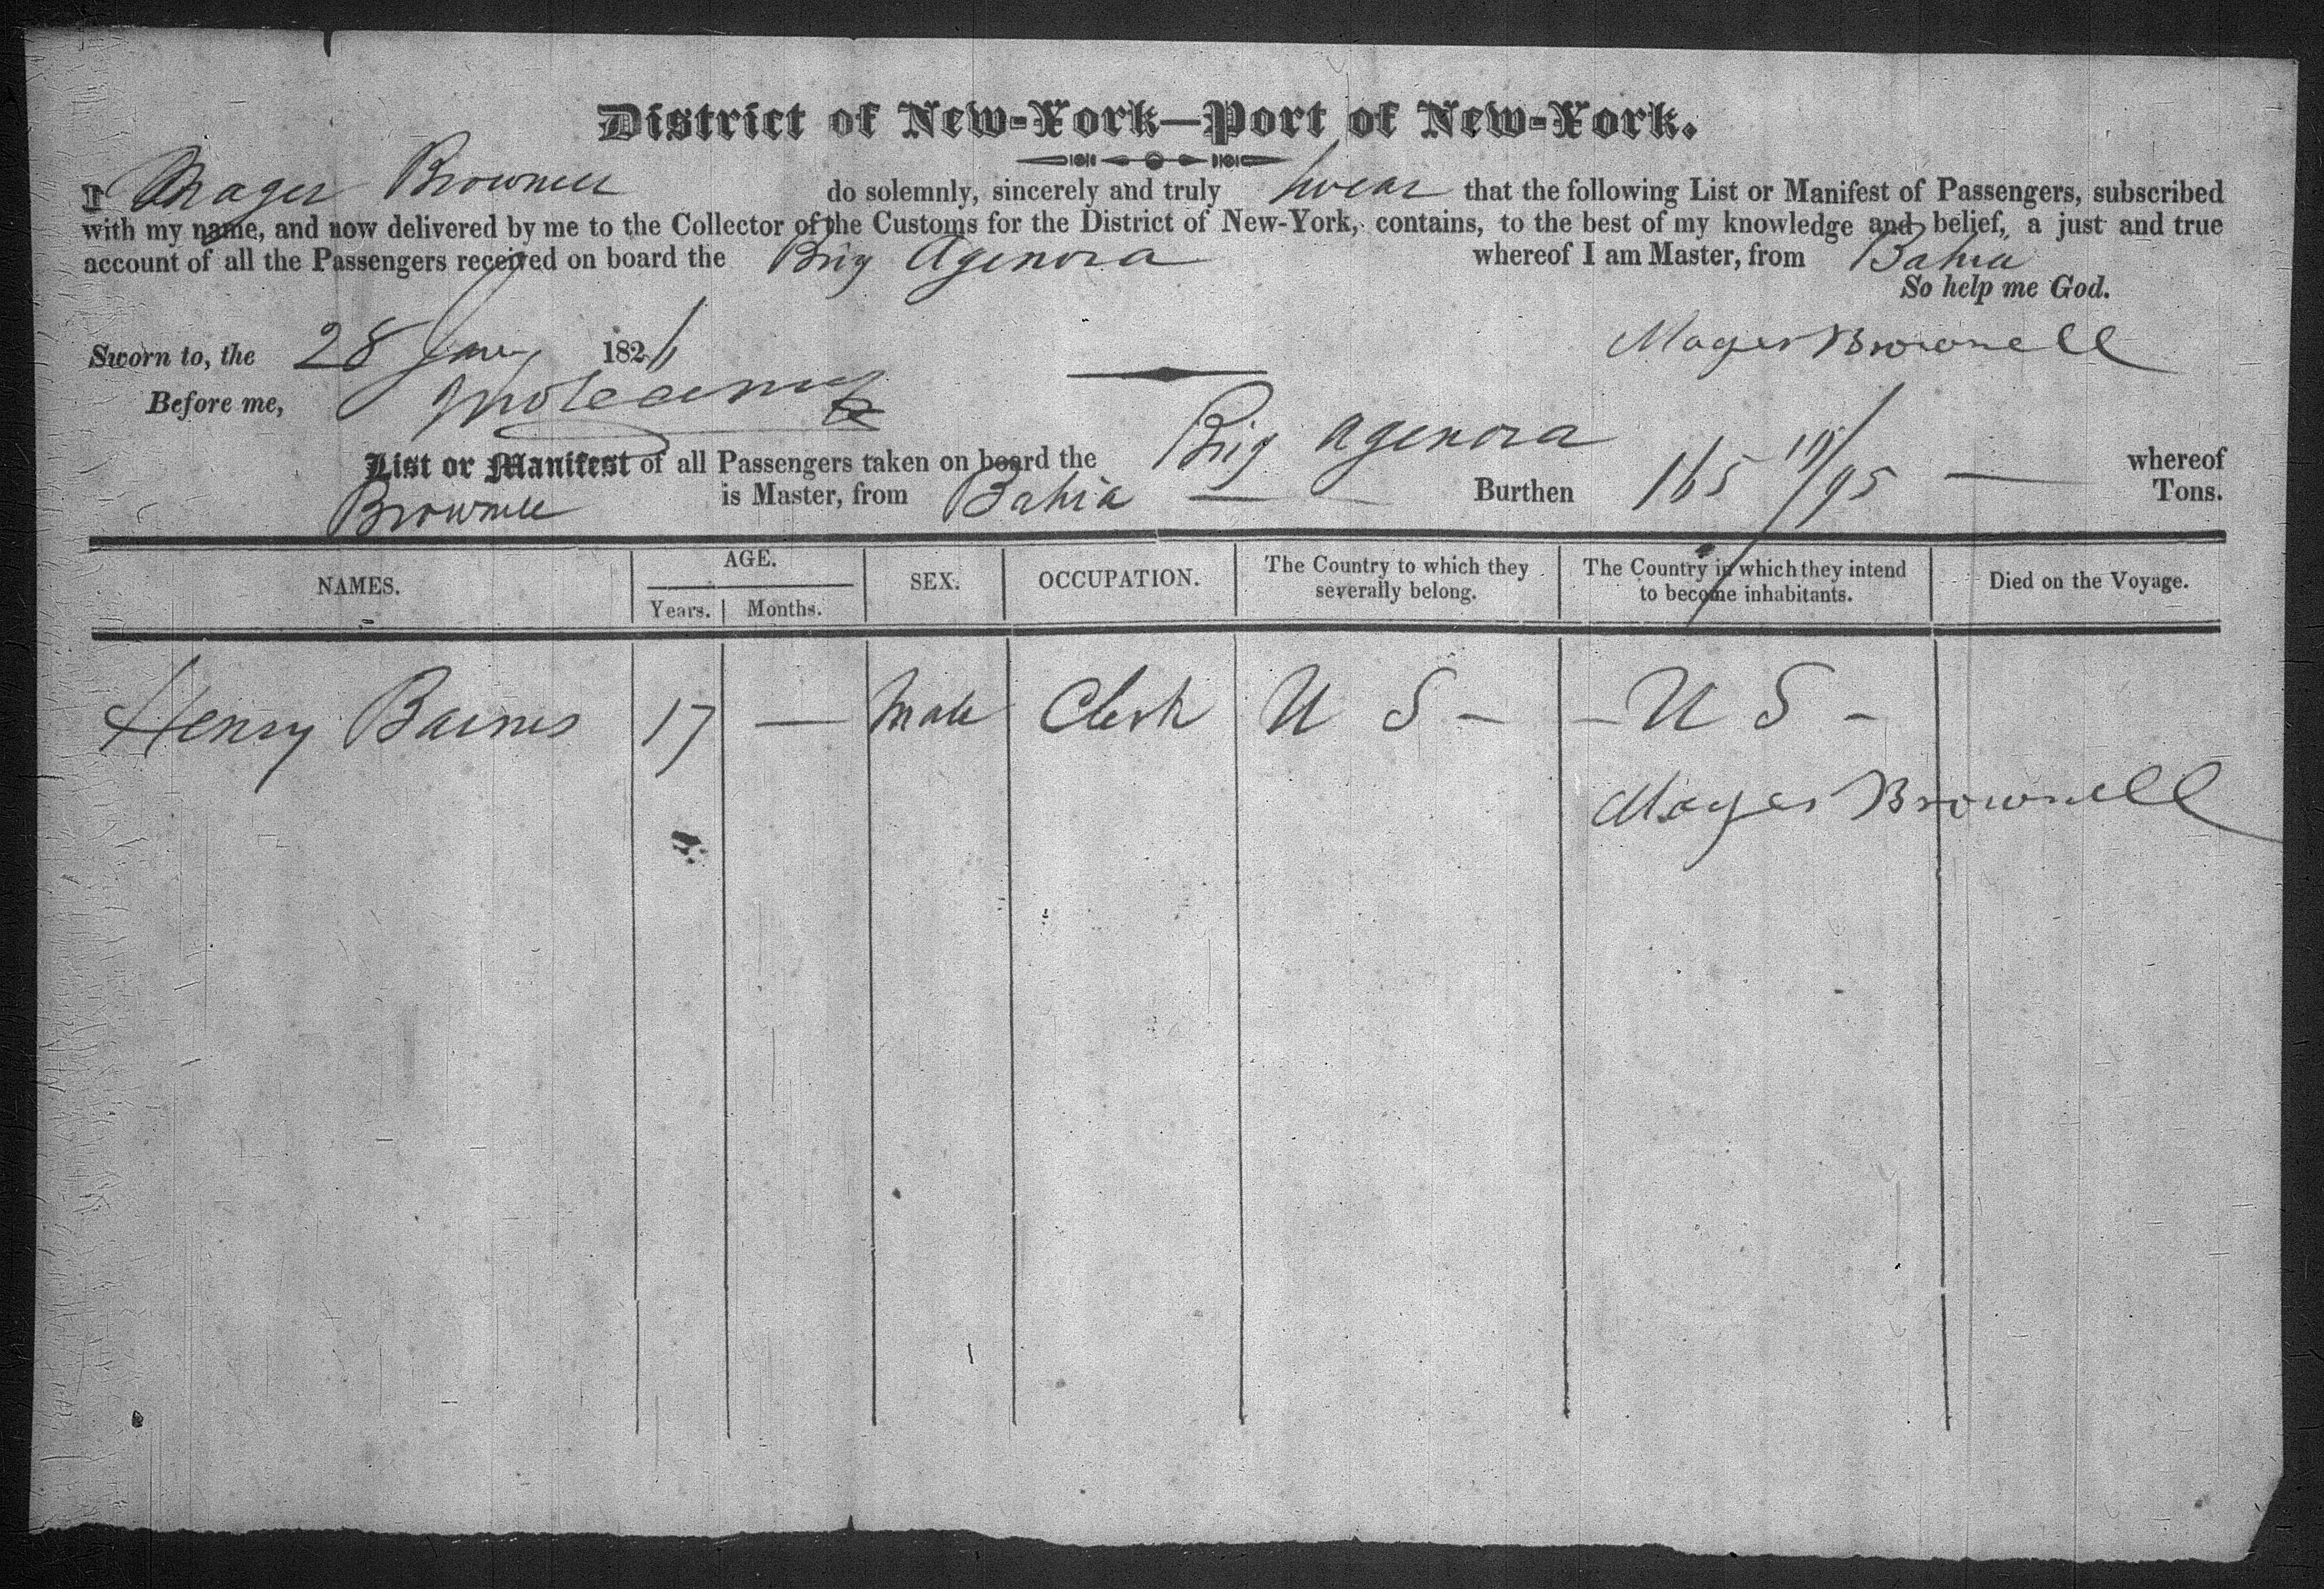 District of New-York—Port of New-York.
I Mager Brownell do solemnly, sincerely and truly swear that the following List or Manifest of Passengers, subscribed
with my name, and now delivered by me to the Collector of the Customs for the District of New-York, contains, to the best of my knowledge and belief, a just and true
account of all the Passengers received on board the Brig Agenora whereof I am Master, from Bahia
So help me God.
Sworn to, the 28 Jany 1821
Mager Brownell
Before me,
List or Manifest of all Passengers taken on board the Brig Agenora whereof
Brownell is Master, from Bahia — Burthen 165 /95 — Tons.
NAMES. AGE. SEX. OCCUPATION. The Country to which they severally belong. The Country in which they intend to become inhabitants. Died on the Voyage.
Years. Months.
Henry Barnes 17 — Male Clerk U S - - U S -
Mager Brownell